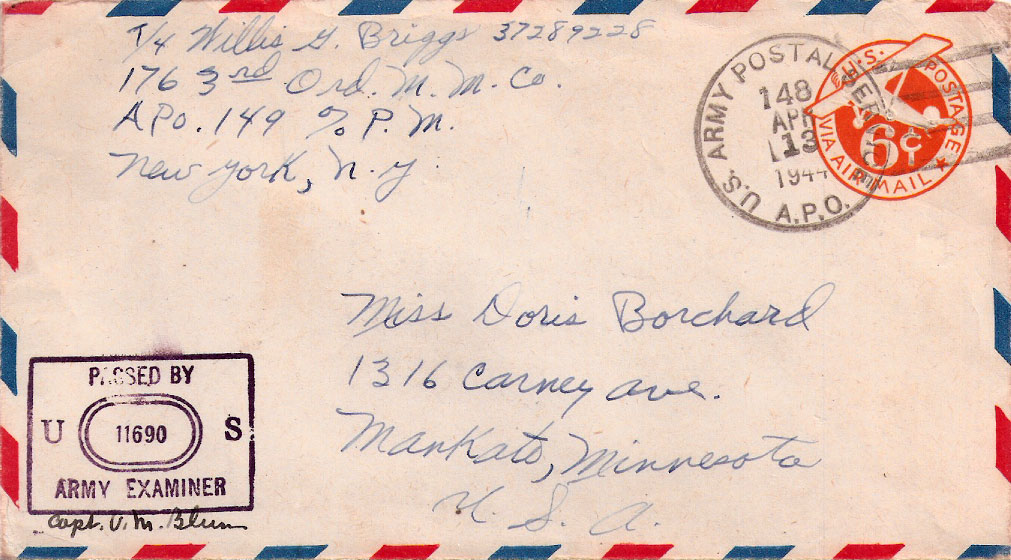 T/4 Willis G. Briggs 37289228
176 3rd Ord. M. M. Co.
APO. 149 % P. M.
New York, N. Y.
U.S. ARMY POSTAL SERVICE
148
APR
13
1944
A.P.O.
U.S. POSTAGE
6¢
VIA AIR MAIL
Miss Doris Borchard
1316 Carney ave.
Mankato, Minnesota
U. S. A.
PASSED BY
U 11690 S
ARMY EXAMINER
Capt. V. M. Blum